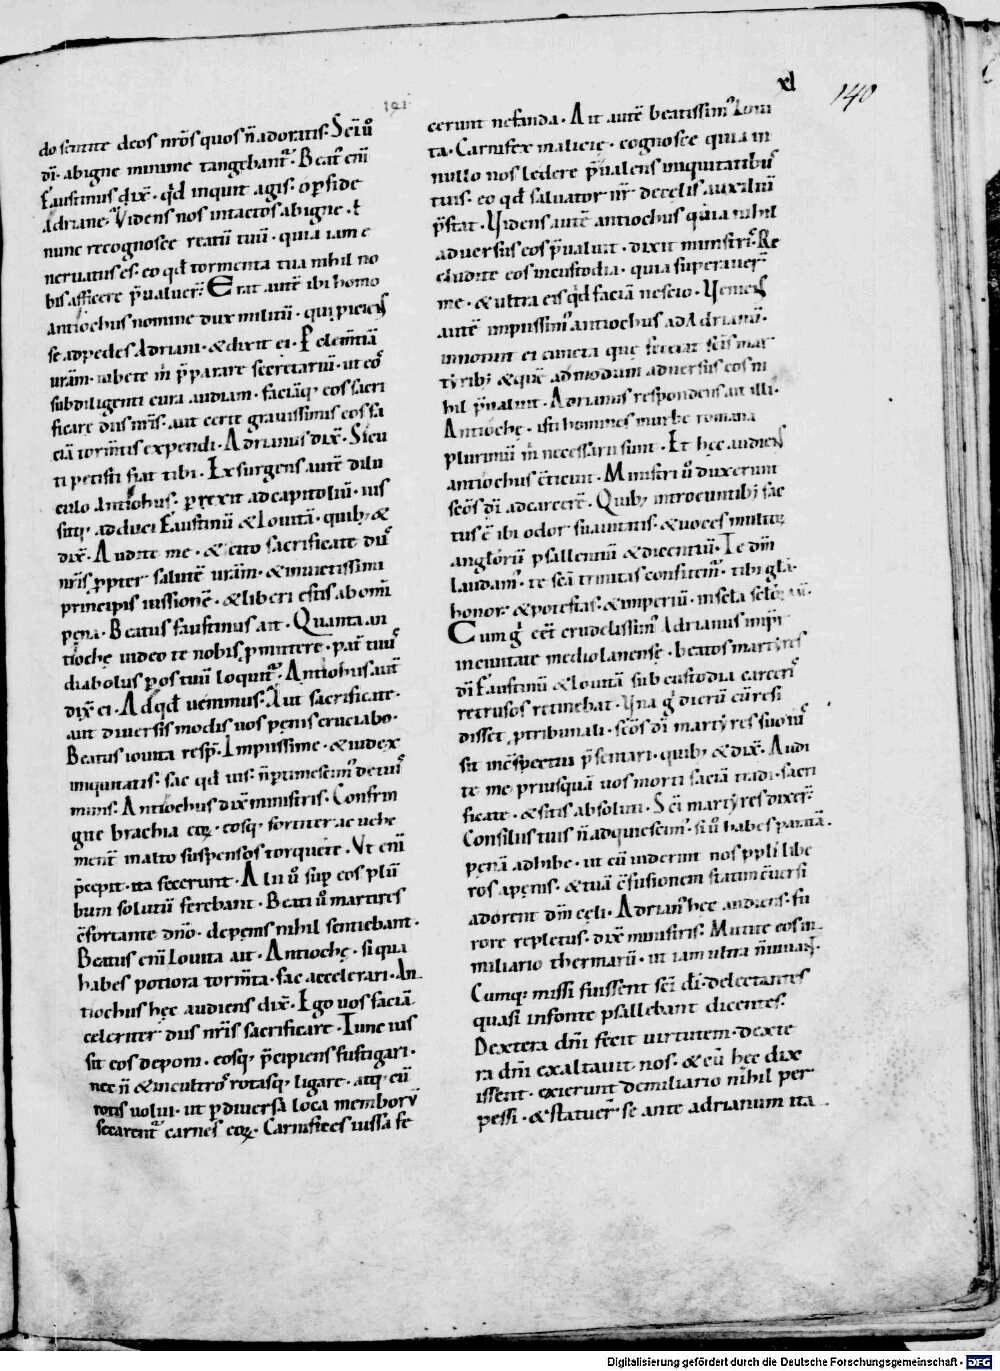 xl
140
191
do sentite deos nr̄os quos n̄ adoratis. Sc̄i ů
dī. abigne minime tangebant᷑. Beat᷒ eni
faustinus dix̄. qd̄ inquit agis. o pfide
Adriane. Videns nos intactos abigne. &
nunc recognosce reatū tuū. quia iam e
neruatus es. eo qd̄ tormenta tua nihil no
bis afficere p̄ualuer̄. Erat autē ibi homo
antiochus nomine dux militū. qui piciens
se ad pedes Adriani. & dixit ei. P clem̄tiā
urām. iubete m̄ p̄parare secretariū. ut eos
sub diligenti cura audiam. faciāq; eos sacri
ficare diis nr̄is. aut certe grauissimis eos fa
ciā torm̄tis expendi. Adrianus dix̄. Sicu
ti petisti fiat tibi. Exsurgens autē dilu
culo Antiohus. perexit ad capitoliū. ius
sitq; adduci faustinū & Iouitā. quib; &
dix̄. Audite me. & cito sacrificate diis
nr̄is. ppter salutē urām. & inuictissimi
principis iussionē. & liberi estis ab omī
pena. Beatus faustinus ait. Quanta an
tioche uideo te nobis pmittere. pat̄ tuus
diabolus p os tuū loquit᷑. Antiohus aut̄
dix̄ ei. Ad qd̄ uenimus. Aut sacrificate.
aut diuersis modis uos penis cruciabo.
Beatus iouita resp̄. Impiissime. & iudex
iniquitatis. fac qd̄ uis. n̄ ptimescim᷒ de tuis
minis. Antiochus dix̄ ministris. Confrin
gite brachia eoꝝ. eosq; fortiter ac uehe
ment̄ in alto suspensos torquete. Vt eni
p̄cepit. ita fecerunt. Alii ů sup eos plū
bum solutū ferebant. Beati ů martires
c̄fortante dn̄o. de penis nihil sentiebant.
Beatus eni Iouita ait. Antioche. si qua
habes potiora torm̄ta. fac accelerari. An
tiochus hęc audiens dix̄. Ego uos faciā
celeriter diis nr̄is sacrificare. Tunc ius
sit eos deponi. eosq; p̄cipiens fustigari.
nec n̄ & in cultros rotasq; ligare. atq; cū
rotis uolui. ut p diuersa loca membroꝝ
secarent᷑ carnes eoꝝ. Carnifices iussa fe
cerunt nefanda. Ait autē beatissim᷒ Ioui
ta. Carnifex malicię. cognosce quia in
nullo nos ledere p̄ualens iniquitatib᷒
tuis. eo qd̄ saluator nr̄ de celis auxiliū
p̄stat. Videns autē antiochus quia nihil
aduersus eos p̄ualuit. dixit ministris. Re
cludite eos in custodia. quia superauer̄
me. & ultra eis qd̄ faciā nescio. Veniens
autē impiissim᷒ antiochus ad Adrianū.
innotuit ei cuncta que fecerat sc̄is mar
tyrib; & quē ad modum aduersus eos ni
hil p̄ualuit. Adrianus respondens ait illi.
Antioche. isti homines in urbe romana
plurimū m̄ necessarii sunt. Et hęc audiens
antiochus c̄ticuit. Ministri ů duxerunt
sc̄os dī ad carcerē. Quib; introeuntib; fac
tus ē ibi odor suauitatis. & uoces multoꝝ
angłorū psallentiū & dicentiū. Te dm̄
laudam᷒. te sc̄a trinitas confitem᷒. tibi gła.
honor. & potestas. & imperiū. in scła scłoꝝ.
Cum g° eēt crudelissim᷒ Adrianus imp̄r
in ciuitate mediolanense. beatos martyres
dī faustinū & Iouitā sub custodia carceris
retrusos retinebat. Vna g° dierū cū resi
disset ptribunali. sc̄os dī martyres suo ius
sit in c̄spectui p̄sentari. quib; & dix̄. Audi
te me priusquā uos morti faciā tradi. sacri
ficate. & sitis absoluti. Sc̄i martyres dixer̄.
Consiliis tuis n̄ adquiescim᷒. si ů habes paratā.
penā adhibe. ut cū uiderint nos ppłi libe
ros a penis. & tuā c̄fusionem statim c̄uersi
adorent dm̄ cęli. Adrian᷒ hęc audiens. fu
rore repletus. dix̄ ministris. Mittite eos in
miliario thermarū. ut iam ultra n̄ uiuant.
Cumq; missi fuissent sc̄i dī. delectantes
quasi in fonte psallebant dicentes.
Dextera dn̄i fecit uirtutem. dexte
ra dn̄i exaltauit nos. & cū hęc dixe
issent. exierunt de miliario nihil per
pessi. & statuer̄ se ante adrianum ita
Digitalisierung gefördert durch die Deutsche Forschungsgemeinschaft - DFG